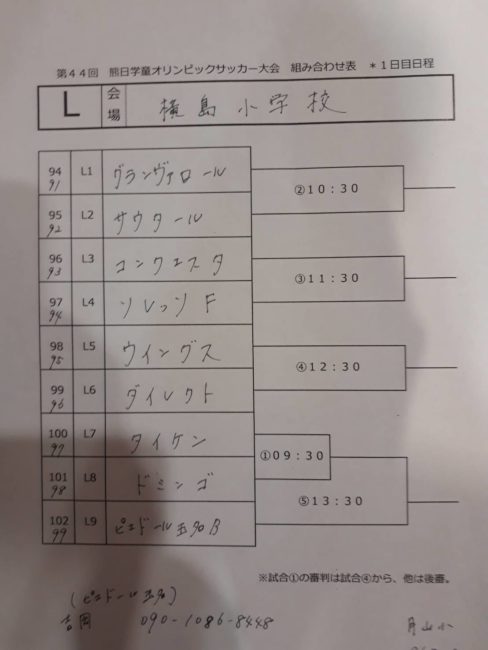 第44回 熊日学童オリンピックサッカー大会 組み合わせ表 *1日目日程
L 会場 横島小学校
94 91 L1 グランヴァロール
②10:30
95 92 L2 サウタール
96 93 L3 コンクエスタ
③11:30
97 94 L4 ソレッソ F
98 95 L5 ウイングス
④12:30
99 96 L6 ダイレクト
100 97 L7 タイケン
①09:30
101 98 L8 ドミンゴ
⑤13:30
102 99 L9 ピエドール玉名B
※試合①の審判は試合④から、他は後審。
(ピエドール玉名)
吉岡 090-1086-8448
月山小